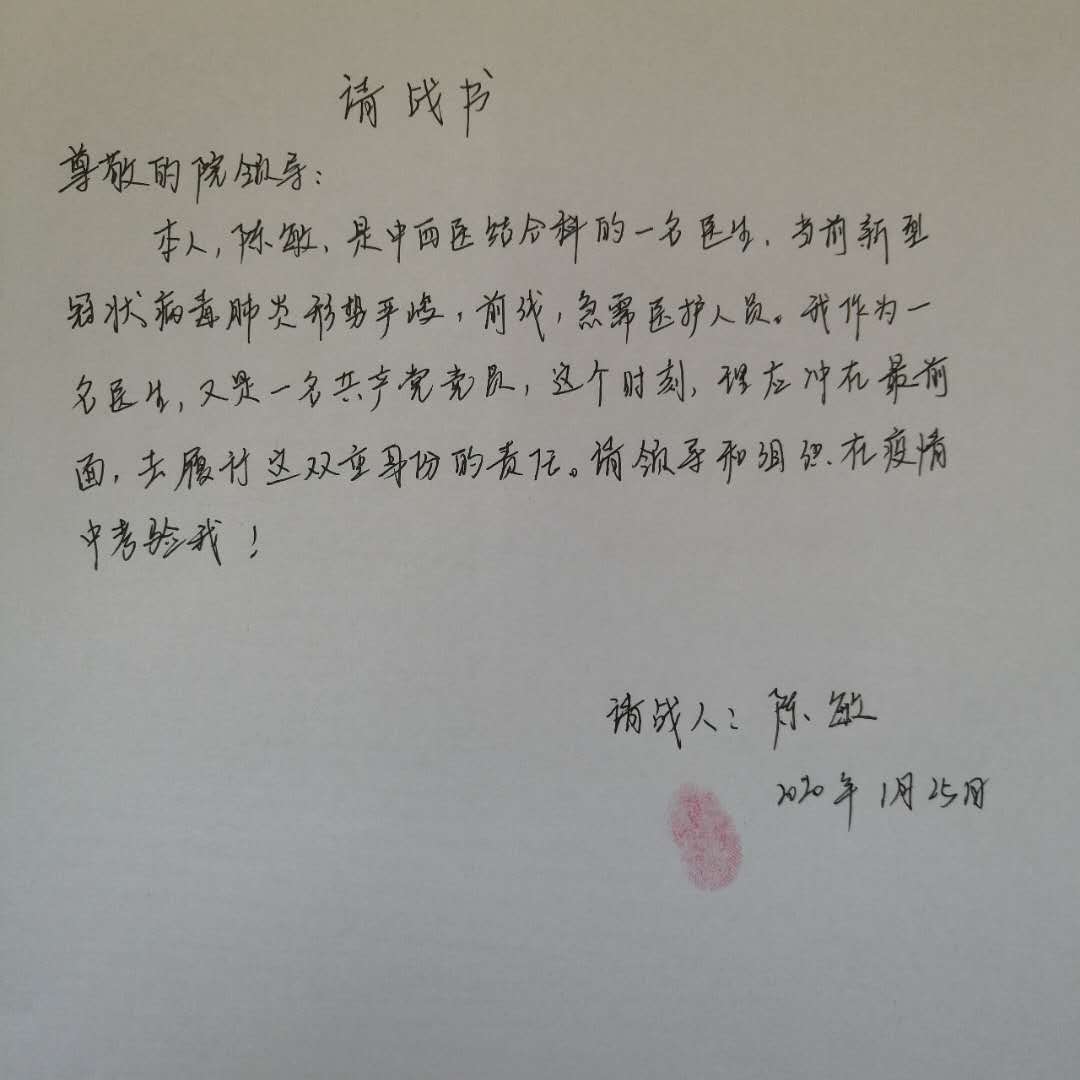 请战书
尊敬的院领导：
本人，陈敏，是中西医结合科的一名医生，当前新型
冠状病毒肺炎形势严峻，前线，急需医护人员。我作为一
名医生，又是一名共产党党员，这个时刻，理应冲在最前
面，去履行这双重身份的责任。请领导和组织在疫情
中考验我！
请战人：陈敏
2020年1月25日